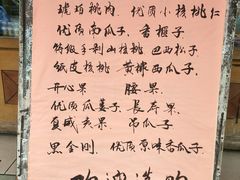 琥珀桃肉、优质小核桃仁
优质南瓜子、香榧子
特级手剥山核桃、巴西松子
纸皮核桃、黄梆西瓜子
开心果 腰果
优质瓜蒌子、长寿果
夏威夷果、吊瓜子
黑金刚、优质原味香瓜子
欢迎选购